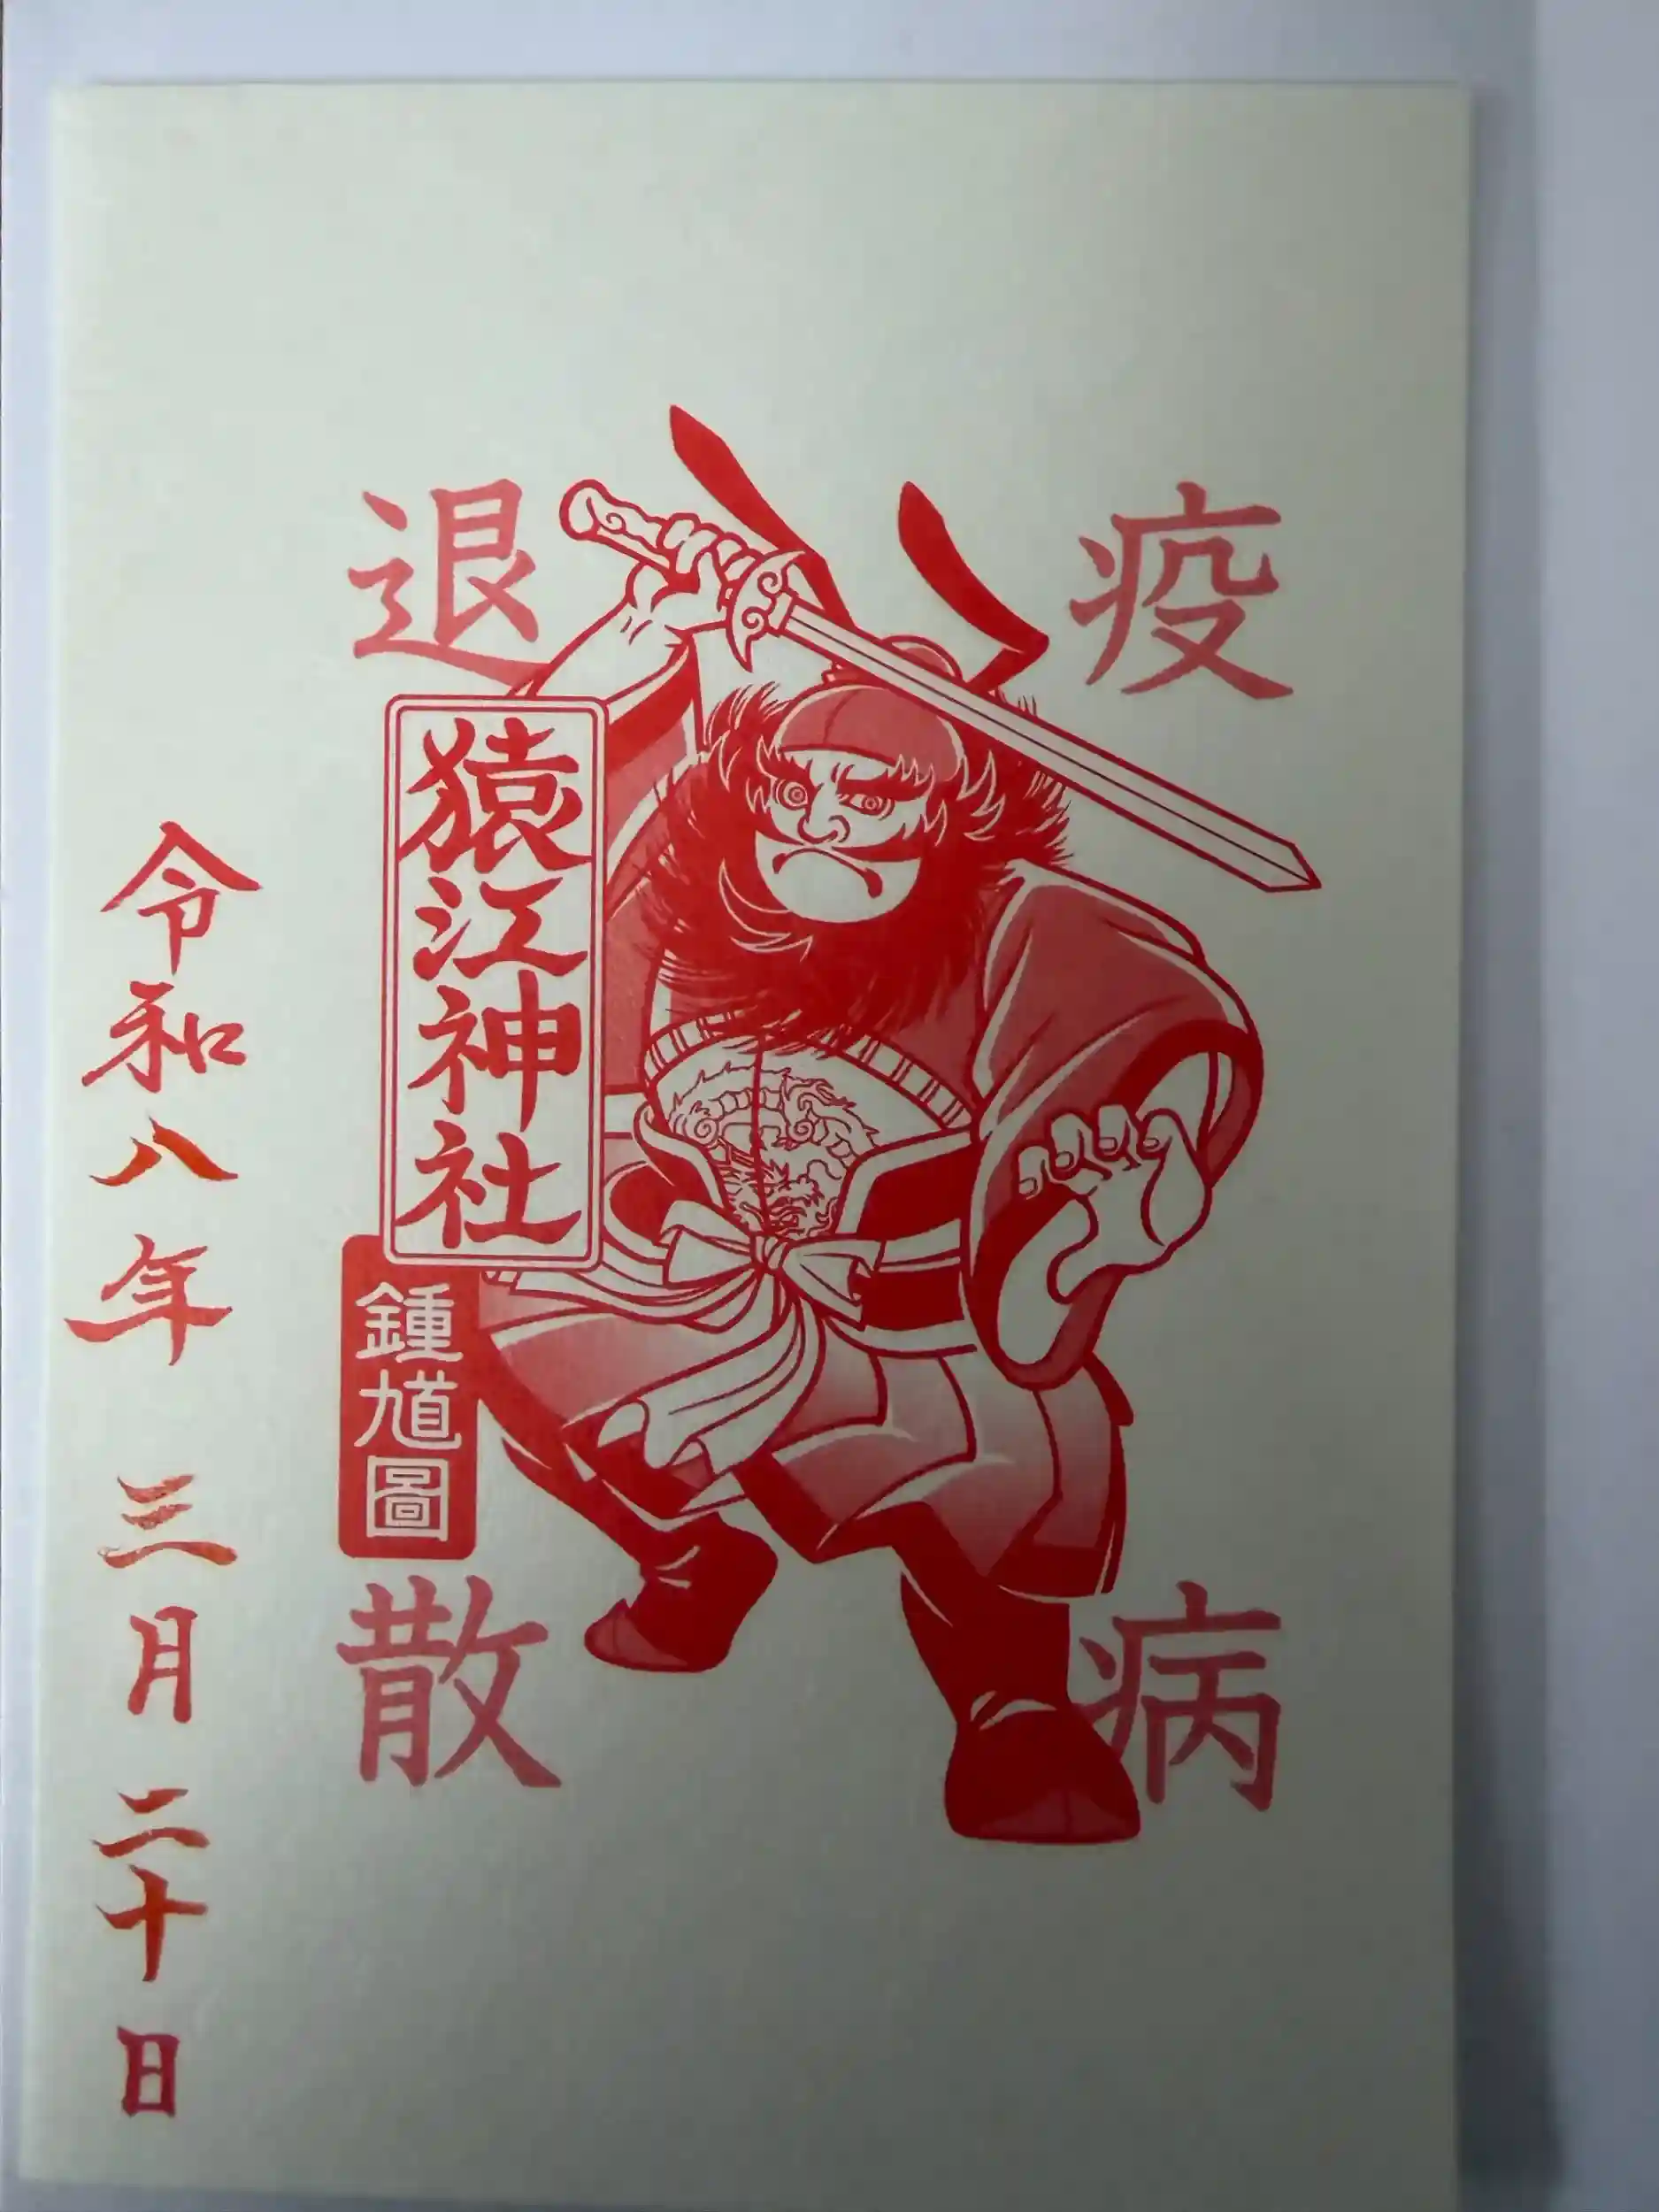 疫病
退散
猿江神社
鍾馗圖
令和八年三月二十日